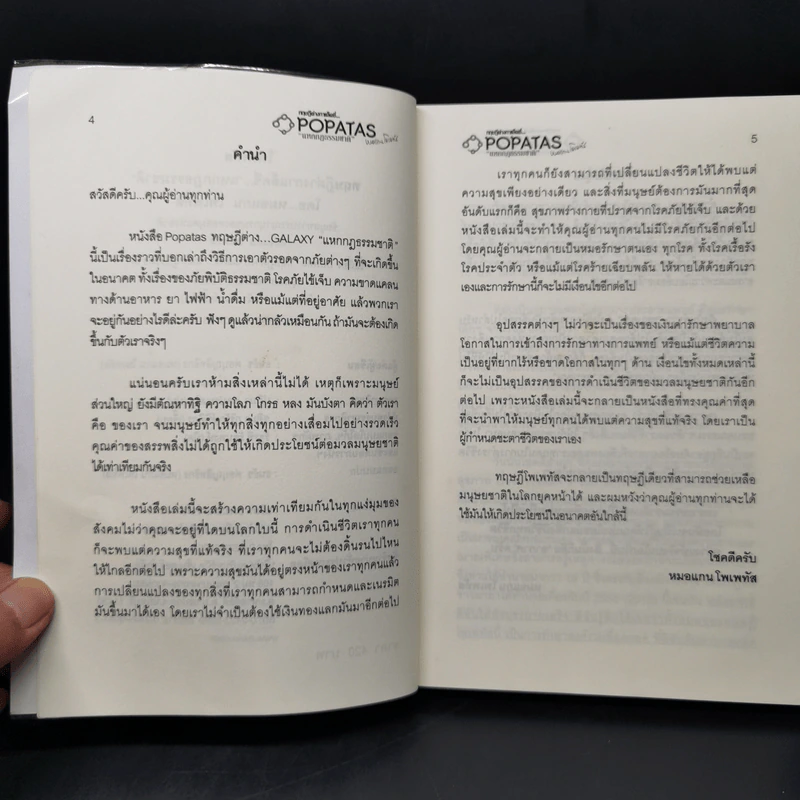 4
ทฤษฎีต่างกาแล็คซี่...
POPATAS
"แหกกฎธรรมชาติ"
คำนำ
สวัสดีครับ...คุณผู้อ่านทุกท่าน
หนังสือ Popatas ทฤษฎีต่าง...GALAXY "แหกกฎธรรมชาติ"
นี้เป็นเรื่องราวที่บอกเล่าถึงวิธีการเอาตัวรอดจากภัยต่างๆ ที่จะเกิดขึ้น
ในอนาคต ทั้งเรื่องของภัยพิบัติธรรมชาติ โรคภัยไข้เจ็บ ความขาดแคลน
ทางด้านอาหาร ยา ไฟฟ้า น้ำดื่ม หรือแม้แต่ที่อยู่อาศัย แล้วพวกเรา
จะอยู่กันอย่างไรดีล่ะครับ ฟังๆ ดูแล้วน่ากลัวเหมือนกัน ถ้ามันจะต้องเกิด
ขึ้นกับตัวเราจริงๆ
แน่นอนครับเราห้ามสิ่งเหล่านี้ไม่ได้ เหตุก็เพราะมนุษย์
ส่วนใหญ่ ยังมีตัณหาทิฐิ ความโลภ โกรธ หลง มันบังตา คิดว่า ตัวเรา
คือ ของเรา จนมนุษย์ทำให้ทุกสิ่งทุกอย่างเสื่อมไปอย่างรวดเร็ว
คุณค่าของสรรพสิ่งไม่ได้ถูกใช้ให้เกิดประโยชน์ต่อมวลมนุษยชาติ
ได้เท่าเทียมกันจริง
หนังสือเล่มนี้จะสร้างความเท่าเทียมกันในทุกแง่มุมของ
สังคมไม่ว่าคุณจะอยู่ที่ใดบนโลกใบนี้ การดำเนินชีวิตเราทุกคน
ก็จะพบแต่ความสุขที่แท้จริง ที่เราทุกคนจะไม่ต้องดิ้นรนไปไหน
ให้ไกลอีกต่อไป เพราะความสุขมันได้อยู่ตรงหน้าของเราทุกคนแล้ว
การเปลี่ยนแปลงของทุกสิ่งที่เราทุกคนสามารถกำหนดและเนรมิต
มันขึ้นมาได้เอง โดยเราไม่จำเป็นต้องใช้เงินทองแลกมันมาอีกต่อไป
ทฤษฎีต่างกาแล็คซี่...
POPATAS
"แหกกฎธรรมชาติ"
5
เราทุกคนก็ยังสามารถที่เปลี่ยนแปลงชีวิตให้ได้พบแต่
ความสุขเพียงอย่างเดียว และสิ่งที่มนุษย์ต้องการมันมากที่สุด
อันดับแรกก็คือ สุขภาพร่างกายที่ปราศจากโรคภัยไข้เจ็บ และด้วย
หนังสือเล่มนี้จะทำให้คุณผู้อ่านทุกคนไม่มีโรคภัยกันอีกต่อไป
โดยคุณผู้อ่านจะกลายเป็นหมอรักษาตนเอง ทุกโรค ทั้งโรคเรื้อรัง
โรคประจำตัว หรือแม้แต่โรคร้ายเฉียบพลัน ให้หายได้ด้วยตัวเรา
เองและการรักษานี้ก็จะไม่มีเงื่อนไขอีกต่อไป
อุปสรรคต่างๆ ไม่ว่าจะเป็นเรื่องของเงินค่ารักษาพยาบาล
โอกาสในการเข้าถึงการรักษาทางการแพทย์ หรือแม้แต่ชีวิตความ
เป็นอยู่ที่ยากไร้หรือขาดโอกาสในทุกๆ ด้าน เงื่อนไขทั้งหมดเหล่านี้
ก็จะไม่เป็นอุปสรรคของการดำเนินชีวิตของมวลมนุษยชาติกันอีก
ต่อไป เพราะหนังสือเล่มนี้จะกลายเป็นหนังสือที่ทรงคุณค่าที่สุด
ที่จะนำพาให้มนุษย์ทุกคนได้พบแต่ความสุขที่แท้จริง โดยเราเป็น
ผู้กำหนดชะตาชีวิตของเราเอง
ทฤษฎีโพเพทัสจะกลายเป็นทฤษฎีเดียวที่สามารถช่วยเหลือ
มนุษยชาติในโลกยุคหน้าได้ และผมหวังว่าคุณผู้อ่านทุกท่านจะได้
ใช้มันให้เกิดประโยชน์ในอนาคตอันใกล้นี้
โชคดีครับ
หมอแกน โพเพทัส